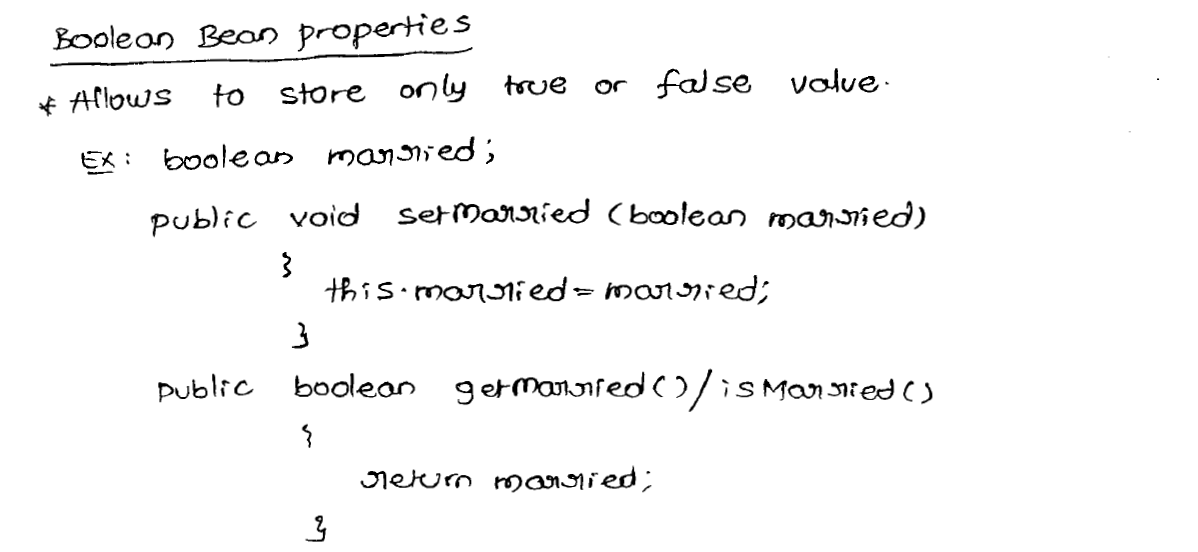 Boolean Bean properties
* Allows to store only true or false value.
Ex: boolean married;
public void setMarried (boolean married)
{
this.married = married;
}
public boolean getMarried()/isMarried()
{
return married;
}